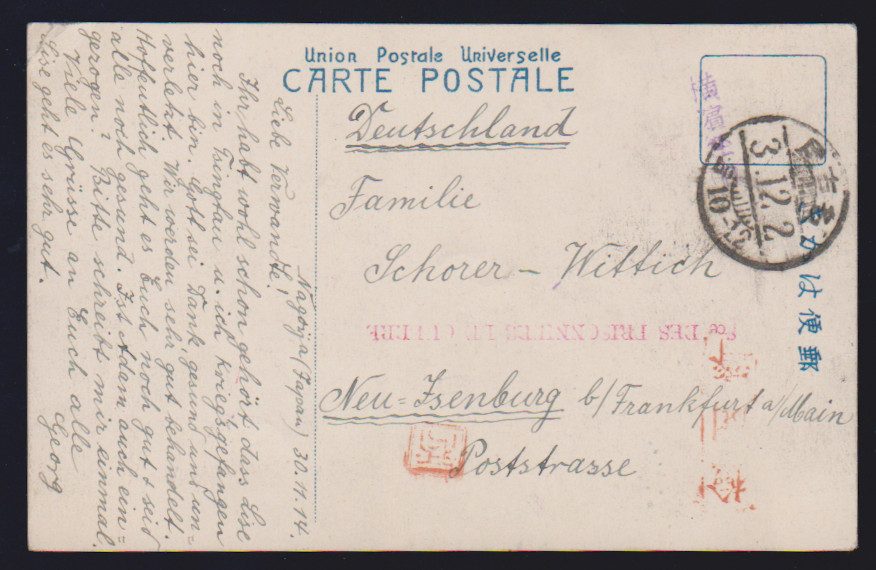 Union Postale Universelle
CARTE POSTALE
Deutschland
Familie
Schorer - Wittich
Neu-Isenburg b/Frankfurt a/Main
Poststrasse
Sce DES PRISONNIERS DE GUERRE
郵便はかき
横濱
3.12.2
Nagoya (Japan) 30.11.14.
Liebe Verwandte!
Ihr habt wohl schon gehört, dass Lise
noch in Tsingtau u. ich Kriegsgefangen
hier bin. Gott sei Dank, gesund und un-
verletzt. Wir werden sehr gut behandelt.
Hoffentlich geht es Euch noch gut & seid
alle noch gesund. Ist Adam auch ein-
gezogen? Bitte schreibt mir einmal.
Viele Grüsse an Euch alle
Georg
Lise geht es sehr gut.